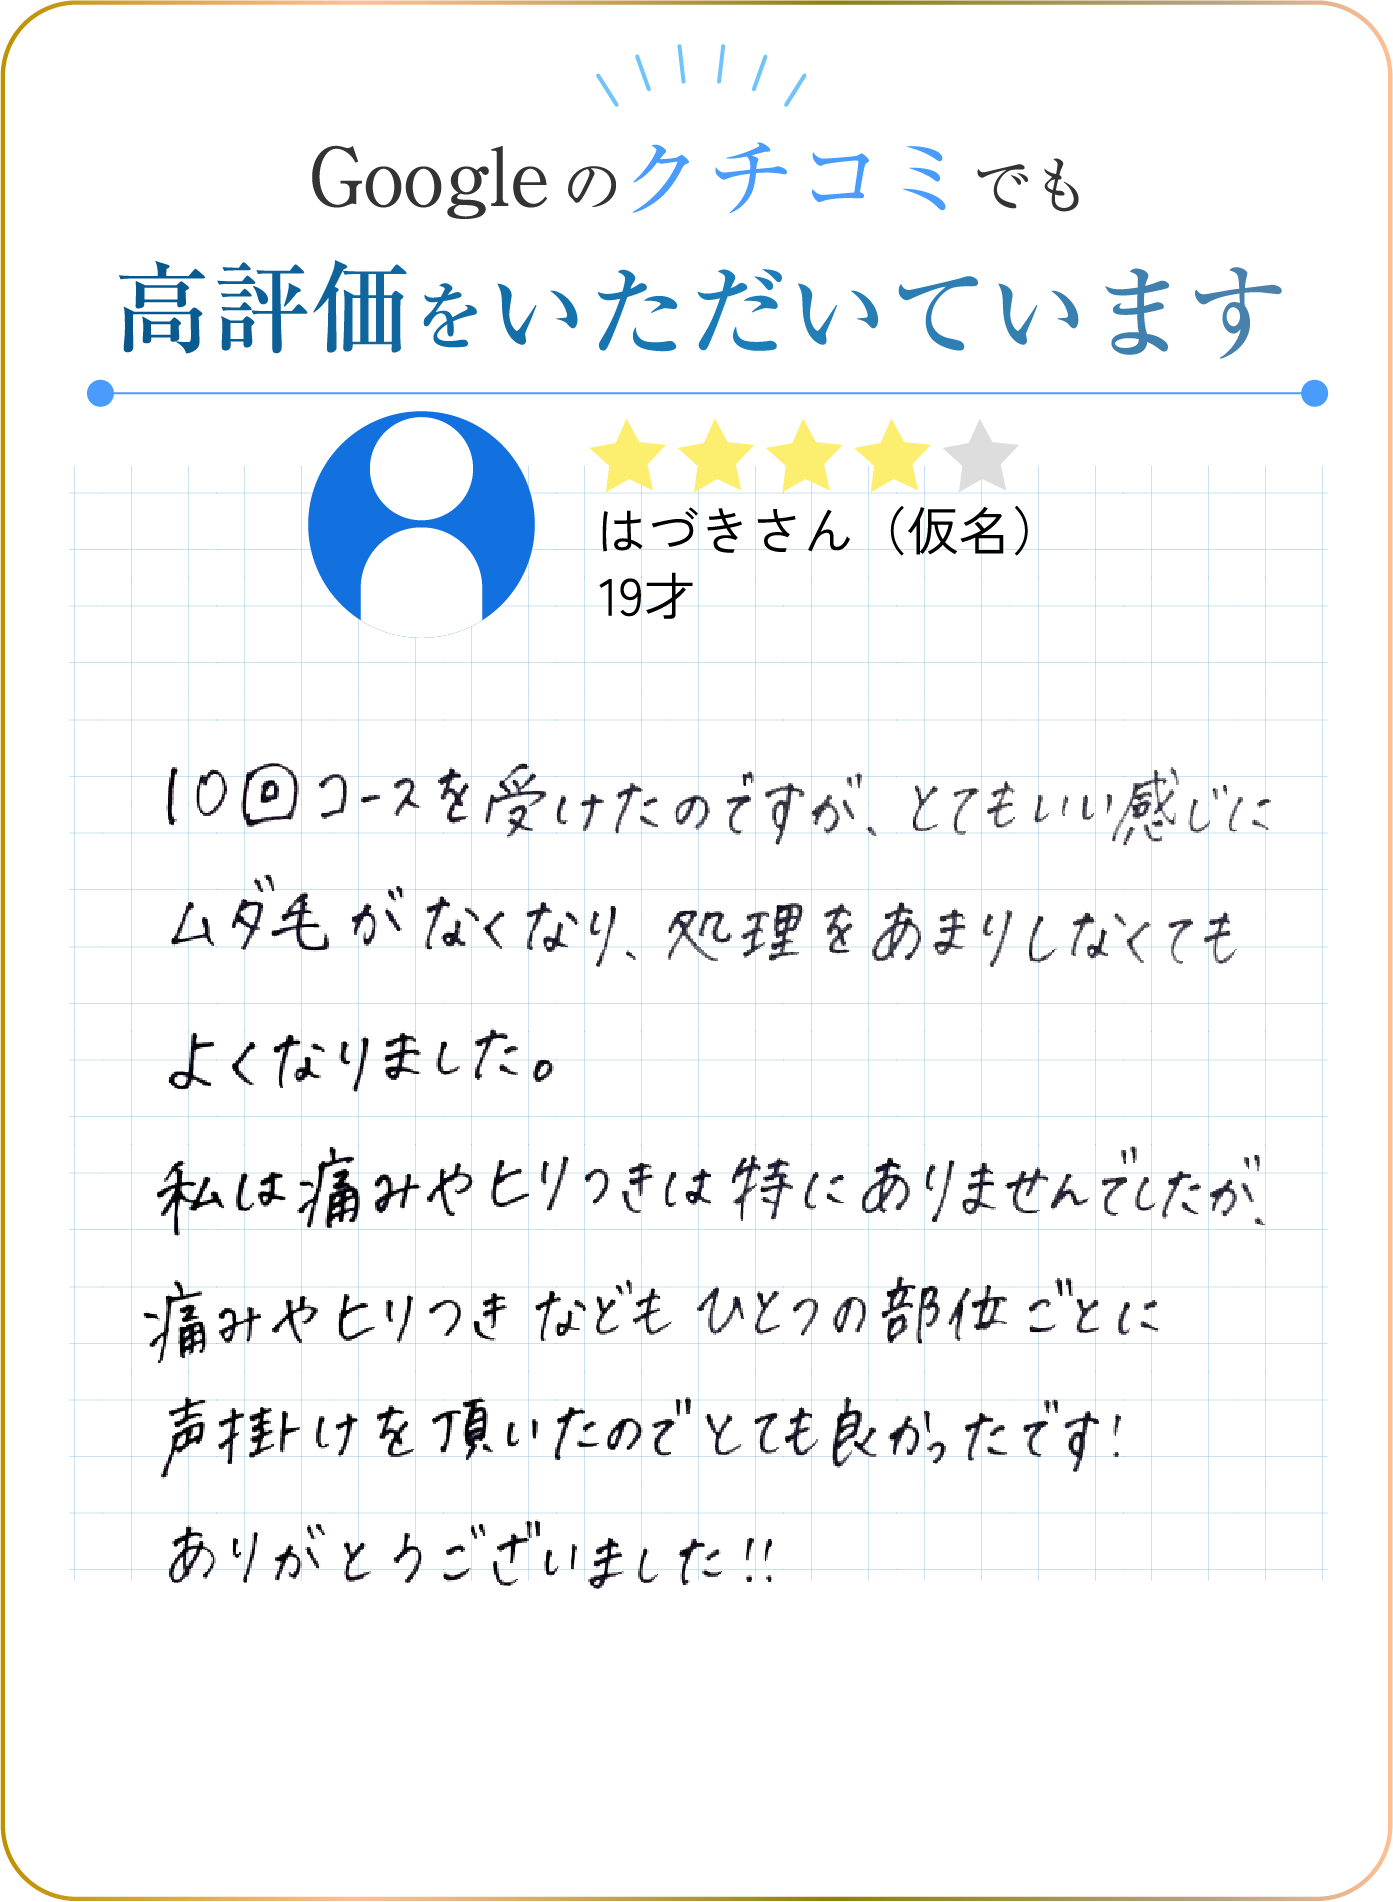 Googleのクチコミでも
高評価をいただいています
はづきさん（仮名）
19才
10回コースを受けたのですが、とてもいい感じに
ムダ毛がなくなり、処理をあまりしなくても
よくなりました。
私は痛みやヒリつきは特にありませんでしたが、
痛みやヒリつきなどもひとつの部位ごとに
声掛けを頂いたのでとても良かったです!
ありがとうございました!!